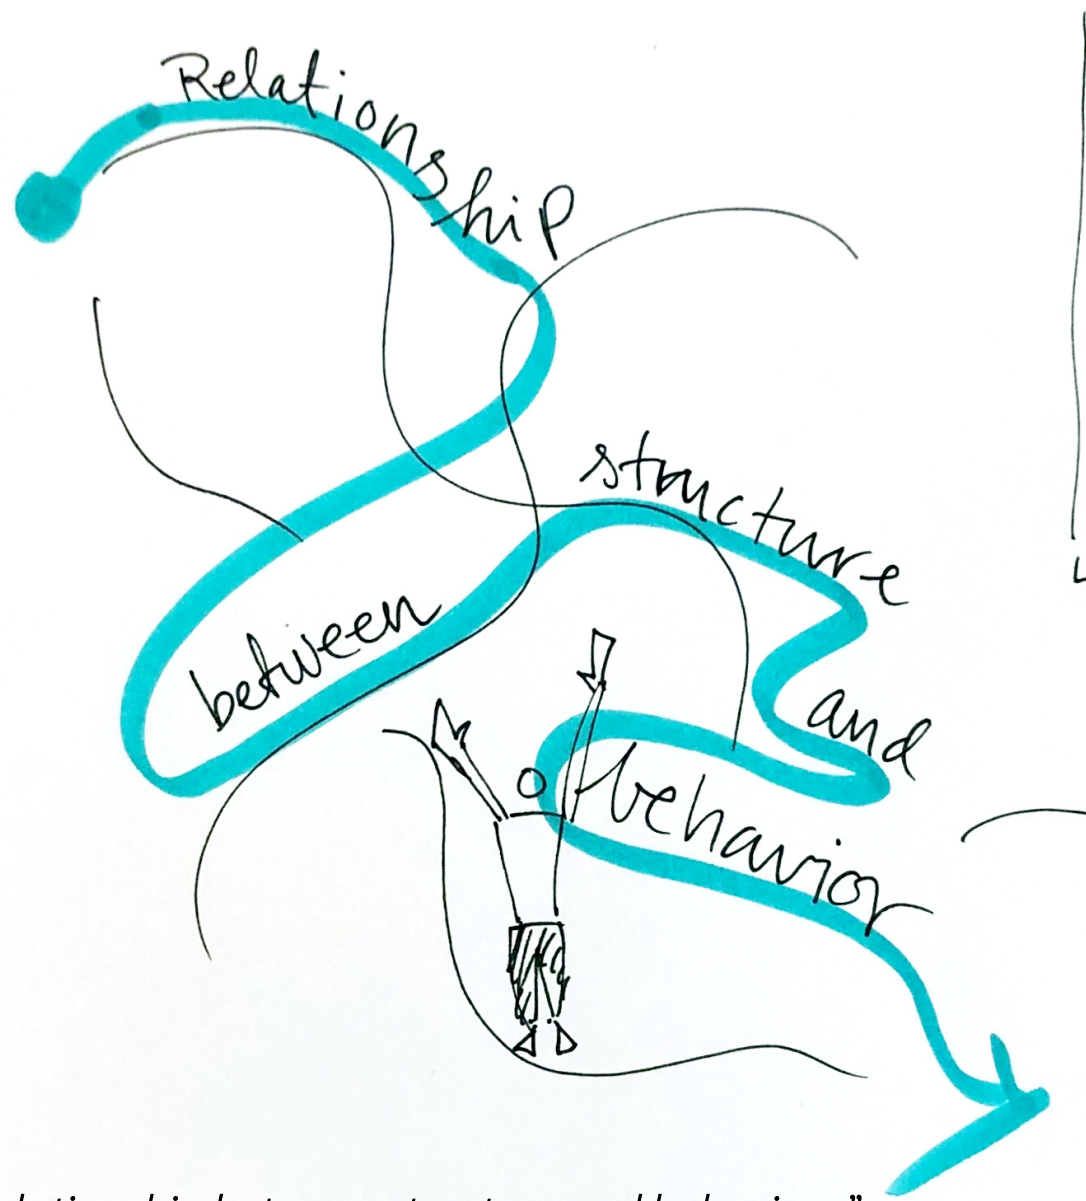 Relationship
between
structure
and
behavior